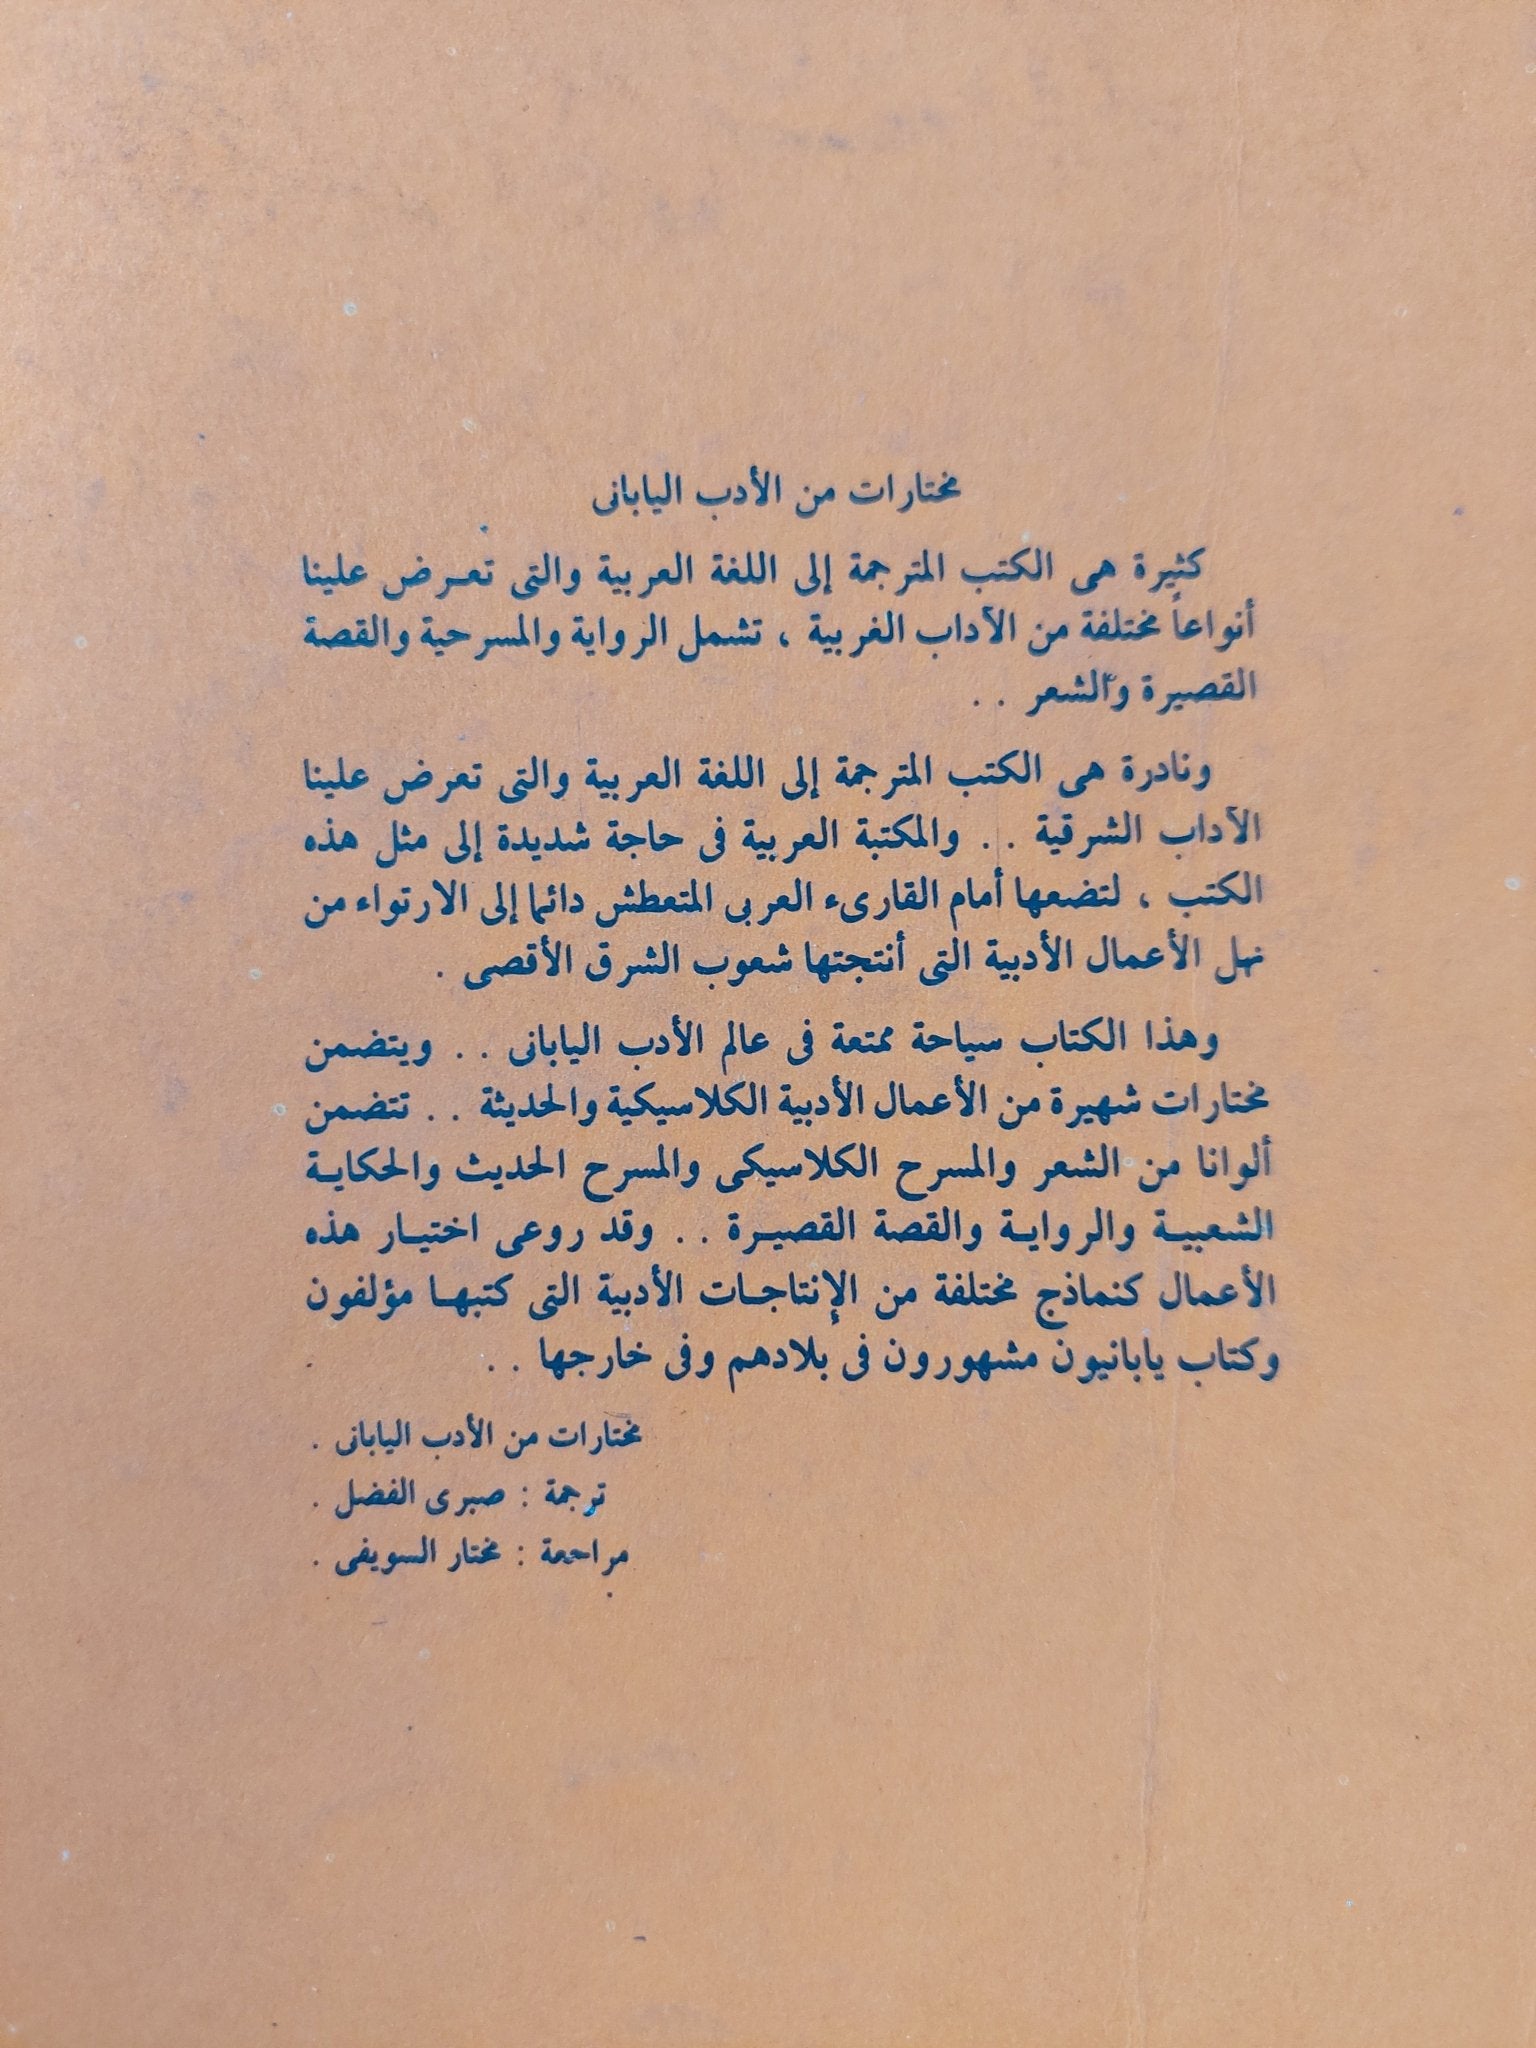 مختارات من الأدب اليابانى
كثيرة هى الكتب المترجمة إلى اللغة العربية والتى تعرض علينا
أنواعاً مختلفة من الآداب الغربية ، تشمل الرواية والمسرحية والقصة
القصيرة والشعر . .
ونادرة هى الكتب المترجمة إلى اللغة العربية والتى تعرض علينا
الآداب الشرقية . . والمكتبة العربية فى حاجة شديدة إلى مثل هذه
الكتب ، لتضعها أمام القارىء العربى المتعطش دائما إلى الارتواء من
نهل الأعمال الأدبية التى أنتجتها شعوب الشرق الأقصى .
وهذا الكتاب سياحة ممتعة فى عالم الأدب اليابانى . . ويتضمن
مختارات شهيرة من الأعمال الأدبية الكلاسيكية والحديثة . . تتضمن
ألوانا من الشعر والمسرح الكلاسيكى والمسرح الحديث والحكاية
الشعبية والرواية والقصة القصيرة . . وقد روعى اختيار هذه
الأعمال كنماذج مختلفة من الإنتاجات الأدبية التى كتبها مؤلفون
وكتاب يابانيون مشهورون فى بلادهم وفى خارجها . .
مختارات من الأدب اليابانى .
ترجمة : صبرى الفضل .
مراجعة : مختار السويفى .